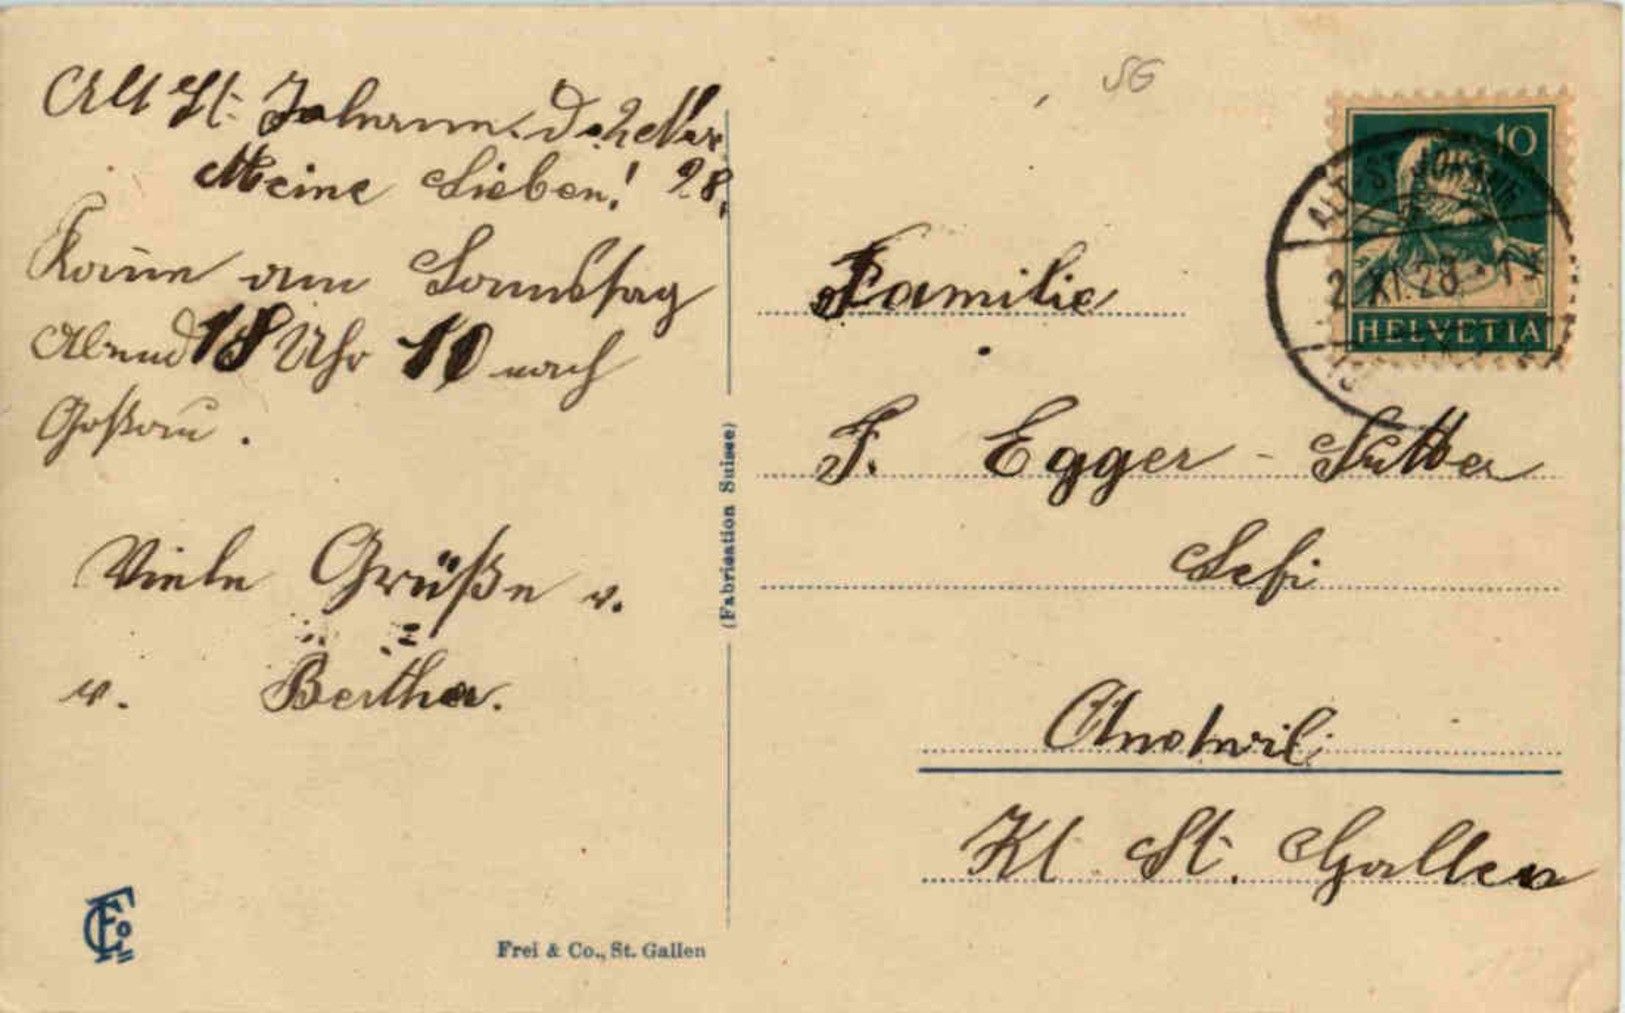 Alt St. Johann. d. 2 Nov.
Meine Lieben! 28.
Komme am Sonntag
Abend 18 Uhr 10 nach
Goßau.
Viele Grüße v.
v. Bertha.
(Fabrication Suisse)
Frei & Co., St. Gallen
SG
10
ALT ST. JOHANN
2. XI. 28
HELVETIA
Familie
J. Egger - Sutter
Andwil
Kt. St. Gallen